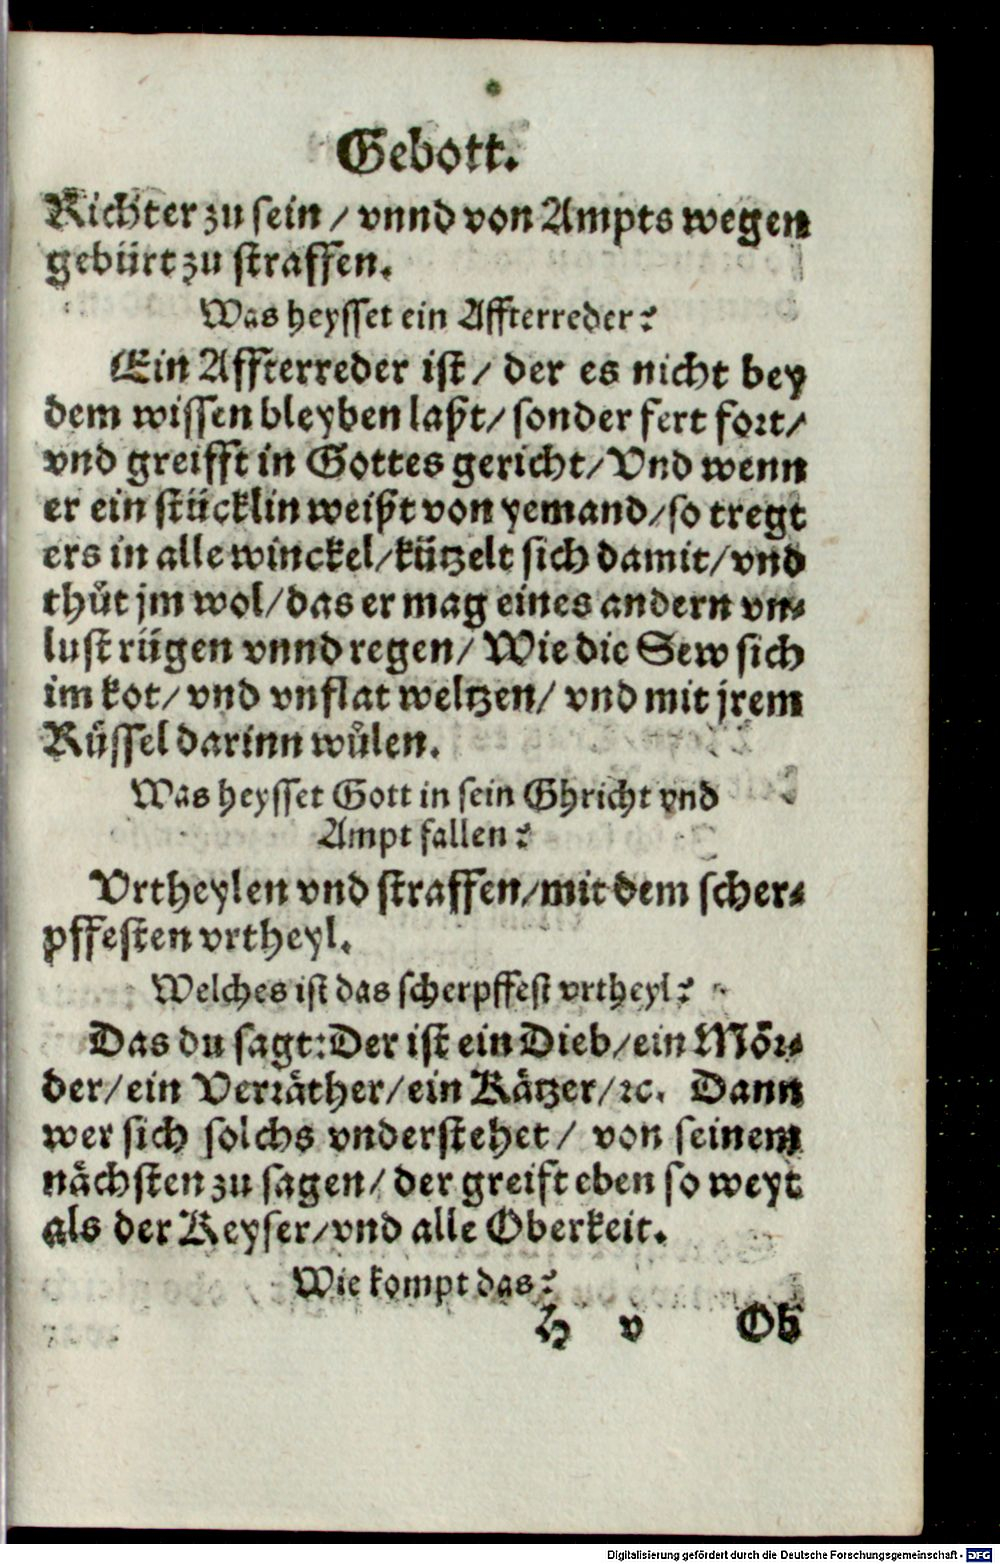 Gebott.
Richter zu sein / vnnd von Ampts wegen
gebürt zu straffen.
Was heysset ein Affterreder?
Ein Affterreder ist / der es nicht bey
dem wissen bleyben laßt / sonder fert fort /
vnd greifft in Gottes gericht / Vnd wenn
er ein stücklin weißt von yemand / so tregt
ers in alle winckel / kützelt sich damit / vnd
thůt jm wol / das er mag eines andern vn-
lust rügen vnnd regen / Wie die Sew sich
im kot / vnd vnflat weltzen / vnd mit jrem
Rüssel darinn wůlen.
Was heysset Gott in sein Ghricht vnd
Ampt fallen?
Vrtheylen vnd straffen / mit dem scher-
pffesten vrtheyl.
Welches ist das scherpffest vrtheyl?
Das du sagt: Der ist ein Dieb / ein Mör-
der / ein Verräther / ein Kätzer / ꝛc. Dann
wer sich solchs vnderstehet / von seinem
nächsten zu sagen / der greift eben so weyt
als der Keyser / vnd alle Oberkeit.
Wie kompt das?
H v Ob
Digitalisierung gefördert durch die Deutsche Forschungsgemeinschaft - DFG